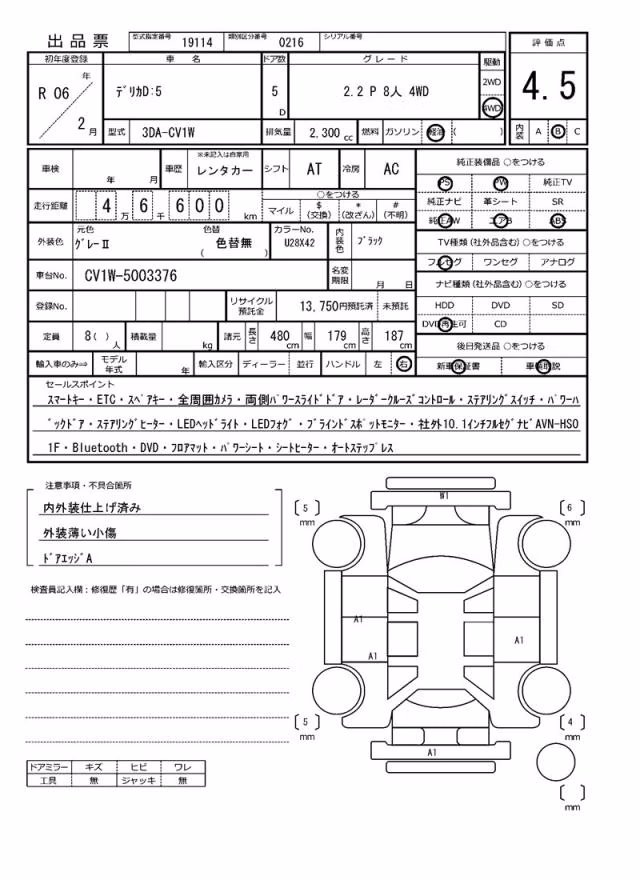 出品票 型式指定番号 19114 類別区分番号 0216 シリアル番号
評価点
4.5
初年度登録 車名 ドア数 グレード 駆動
R 06 年 2 月
ﾃﾞﾘｶD:5 5 D 2.2 P 8人 4WD 2WD 4WD
型式 3DA-CV1W 排気量 2,300 cc 燃料 ガソリン 軽油 ( )
内装 A B C
車検 年 月 車歴 ※未記入は自家用 レンタカー シフト AT 冷房 AC
走行距離 4 万 6 千 6 0 0 km
○をつける
マイル $(交換) *(改ざん) #(不明)
外装色 元色 ｸﾞﾚｰⅡ 色替 色替無 ( ) カラーNo. U28X42 内装色 ﾌﾞﾗｯｸ
車台No. CV1W-5003376 名変期限 月 日
登録No. リサイクル預託金 13,750円預託済 未預託
定員 8( ) 人 積載量 kg 諸元 長さ 480 cm 幅 179 cm 高さ 187 cm
輸入車のみ⇒ モデル年式 年 輸入区分 ディーラー 並行 ハンドル 左 右
純正装備品 ○をつける
PS PW 純正TV
純正ナビ 革シート SR
純正AW エアB ABS
TV種類 (社外品含む) ○をつける
フルセグ ワンセグ アナログ
ナビ種類 (社外品含む) ○をつける
HDD DVD SD
DVD再生可 CD
後日発送品 ○をつける
新車保証書 車輌取説
セールスポイント
ｽﾏｰﾄｷｰ・ETC・ｽﾍﾟｱｷｰ・全周囲ｶﾒﾗ・両側ﾊﾟﾜｰｽﾗｲﾄﾞﾄﾞｱ・ﾚｰﾀﾞｰｸﾙｰｽﾞｺﾝﾄﾛｰﾙ・ｽﾃｱﾘﾝｸﾞｽｲｯﾁ・ﾊﾟﾜｰﾊﾞ
ｯｸﾄﾞｱ・ｽﾃｱﾘﾝｸﾞﾋｰﾀｰ・LEDﾍｯﾄﾞﾗｲﾄ・LEDﾌｫｸﾞ・ﾌﾞﾗｲﾝﾄﾞｽﾎﾟｯﾄﾓﾆﾀｰ・社外10.1ｲﾝﾁﾌﾙｾｸﾞﾅﾋﾞAVN-HS0
1F・Bluetooth・DVD・ﾌﾛｱﾏｯﾄ・ﾊﾟﾜｰｼｰﾄ・ｼｰﾄﾋｰﾀｰ・ｵｰﾄｽﾃｯﾌﾟﾚｽ
注意事項・不具合箇所
内外装仕上げ済み
外装薄い小傷
ﾄﾞｱｴｯｼﾞA
検査員記入欄：修復歴「有」の場合は修復箇所・交換箇所を記入
W1
[ 5 ] mm
[ 6 ] mm
A1
A1
A1
[ 5 ] mm
[ 4 ] mm
A1
[ ] mm
ドアミラー キズ ヒビ ワレ
工具 無 ジャッキ 無